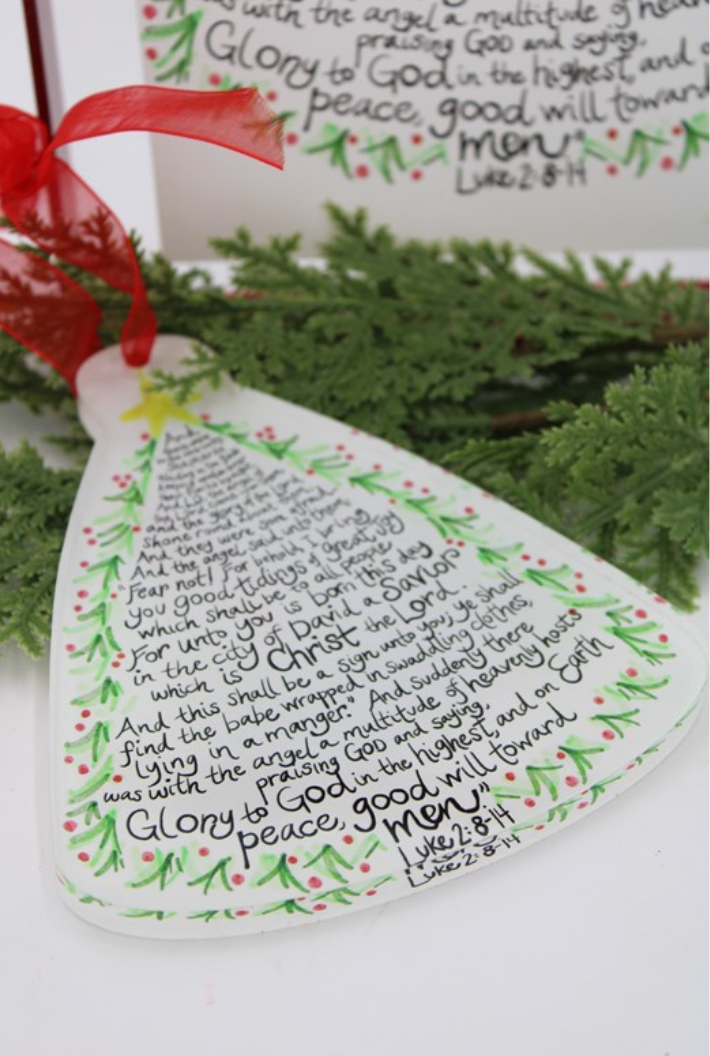 was with the angel a multitude of
praising GOD and saying,
Glory to God in the highest, and
peace, good will toward
men"
Luke 2:8-14
and the glory of the Lord
shone round about them
And they were sore afraid
And the angel said unto them
"Fear not! For behold, I bring
you good tidings of great joy
which shall be to all people
For unto you is born this day
in the city of David a Savior
which is Christ the Lord.
And this shall be a sign unto you; ye shall
find the babe wrapped in swaddling clothes,
lying in a manger." And suddenly there
was with the angel a multitude of heavenly hosts
praising GOD and saying,
Glory to God in the highest, and on Earth
peace, good will toward
men"
Luke 2:8-14
Luke 2:8-14